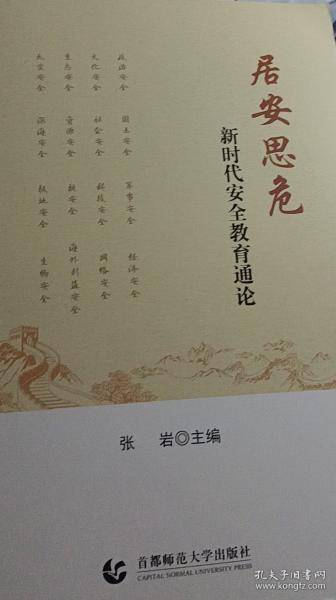 居安思危
新时代安全教育通论
政治安全 国土安全 军事安全 经济安全
文化安全 社会安全 科技安全 网络安全
生态安全 资源安全 核安全 海外利益安全
太空安全 深海安全 极地安全 生物安全
张 岩◎主编
首都师范大学出版社
CAPITAL NORMAL UNIVERSITY PRESS
孔夫子旧书网
www.kongfz.com